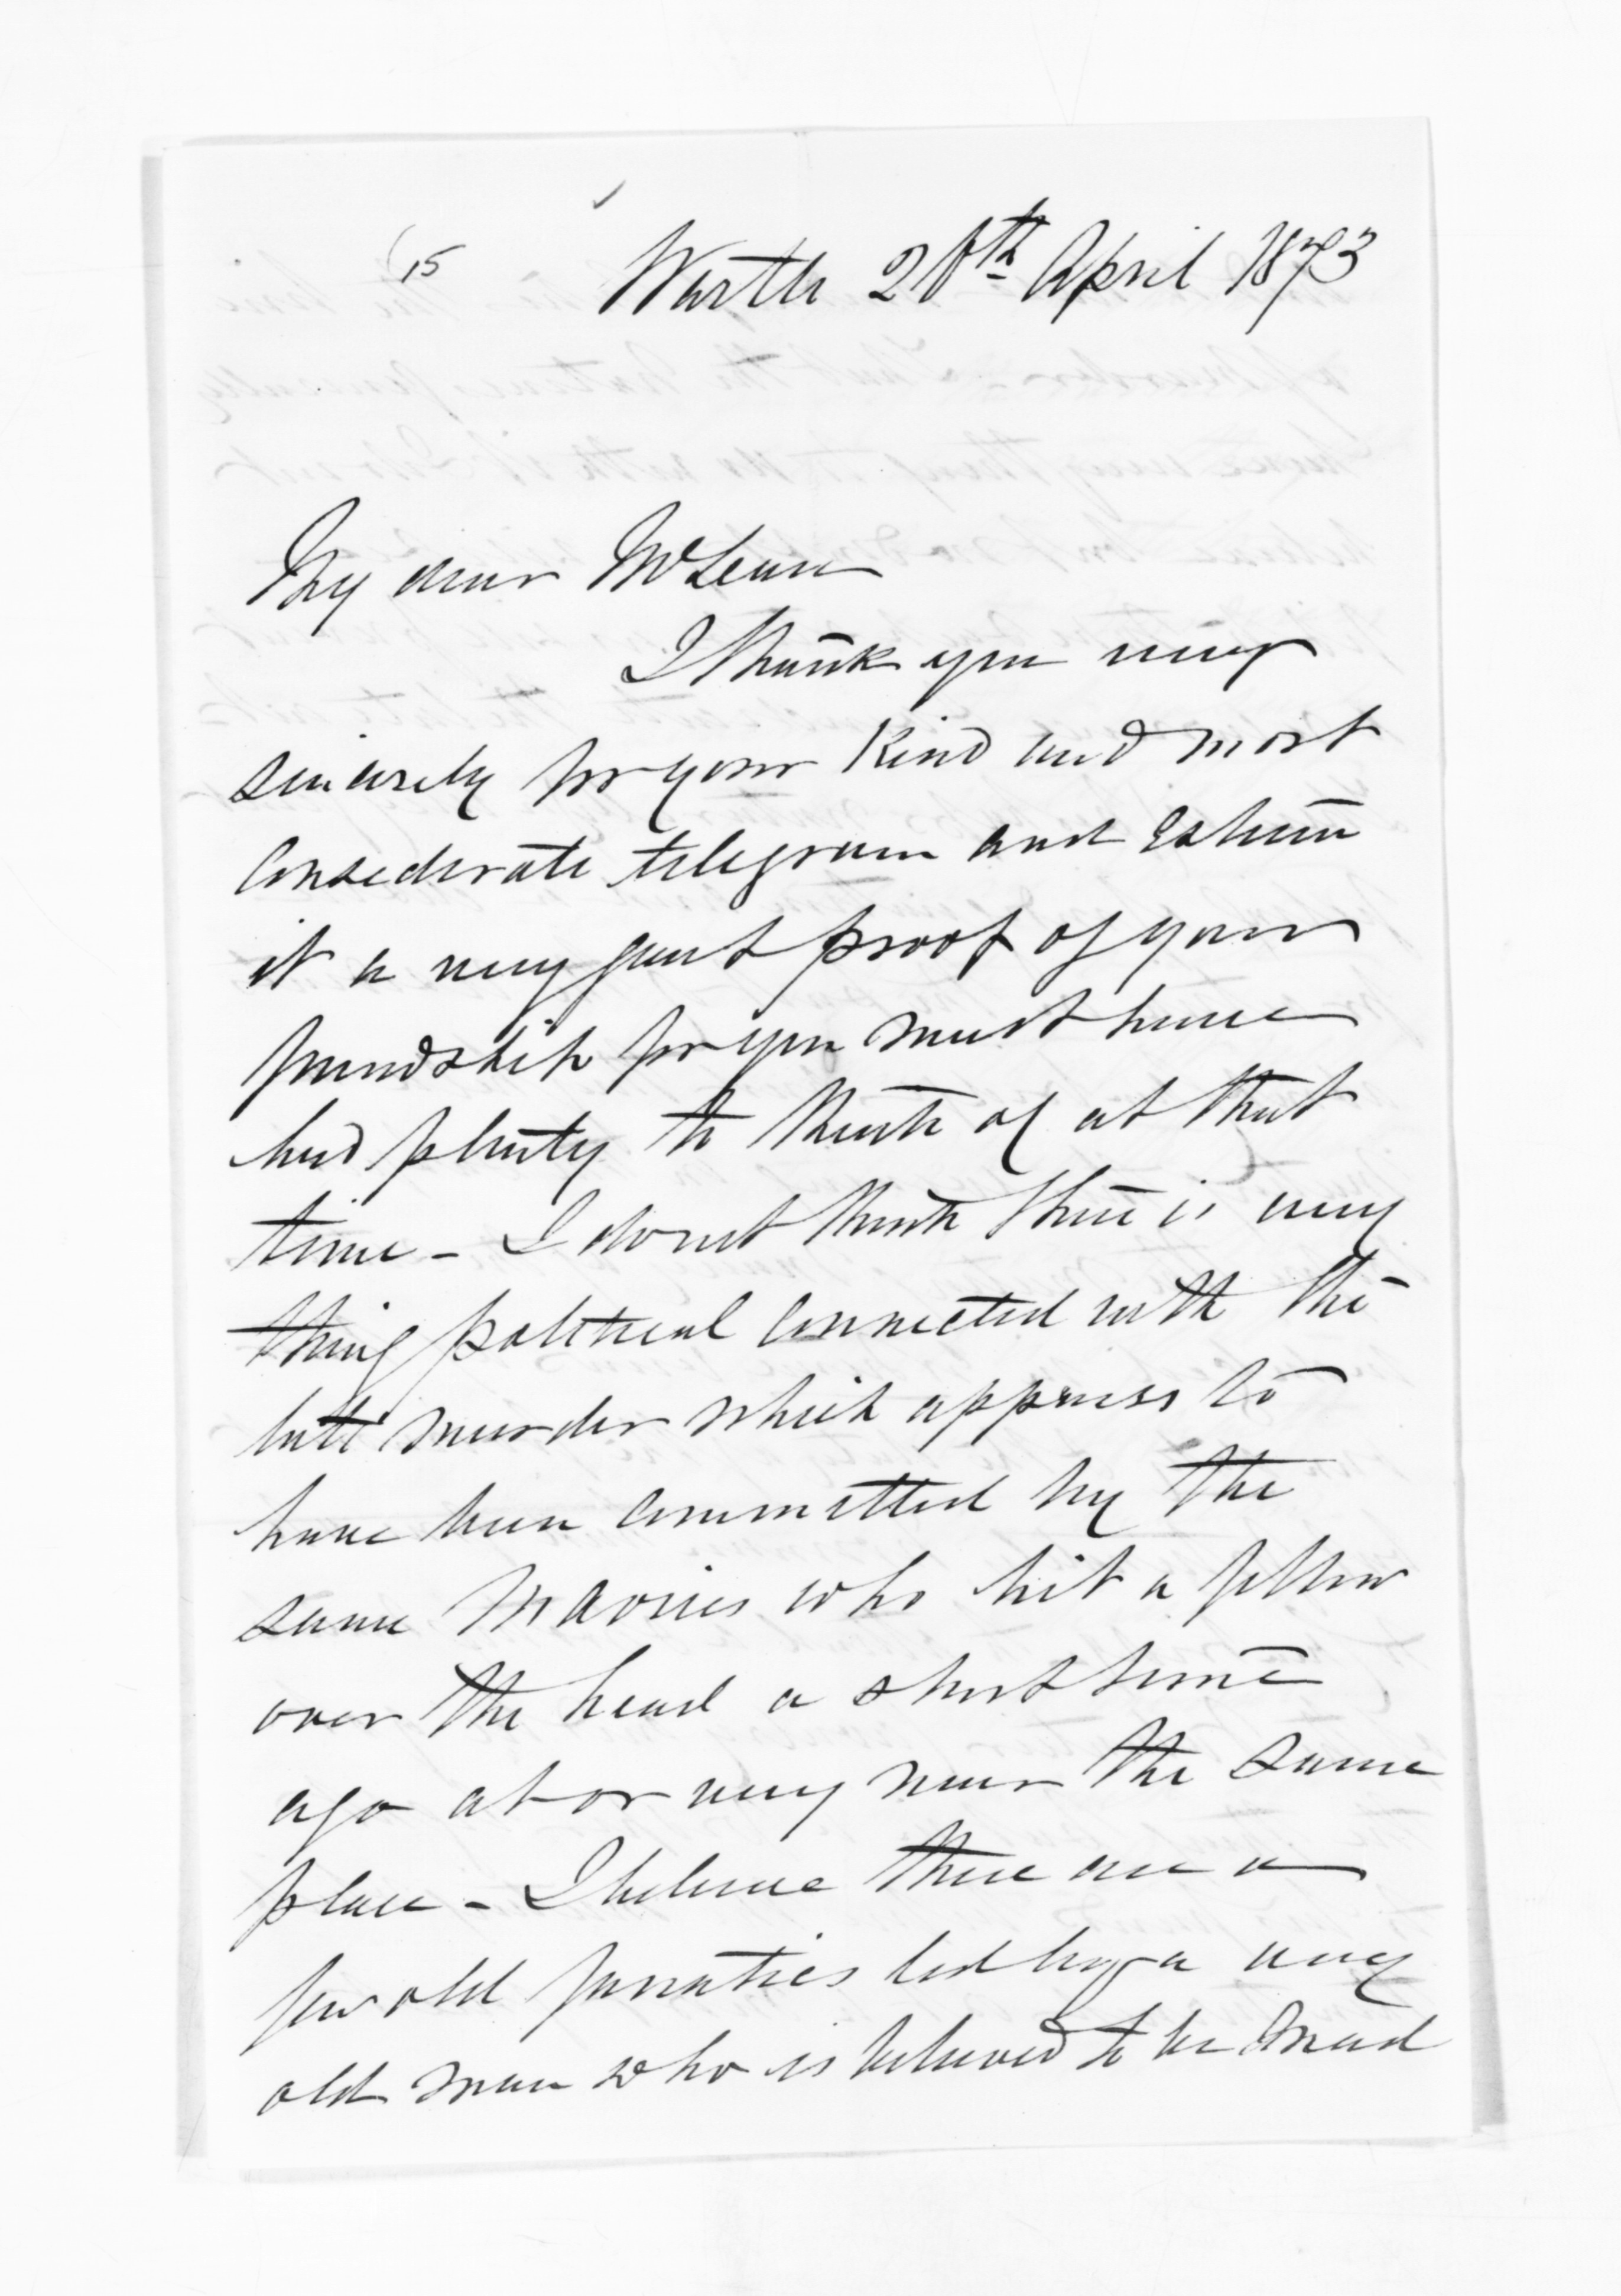 15
April 1873
My dear McLean
I thank you very
sincerely for your kind and most
considerate telegram and Esteem
it a very great proof of your
friendship for you must have
had plenty to think of at that
time - I do not think there is any
thing political connected with the
late murder which appears to
have been committed by the
same Maories who hit a fellow
over the head a short time
ago at or very near the same
place - I believe there are a
few old fanatics led by a very
old man who is believed to be mad